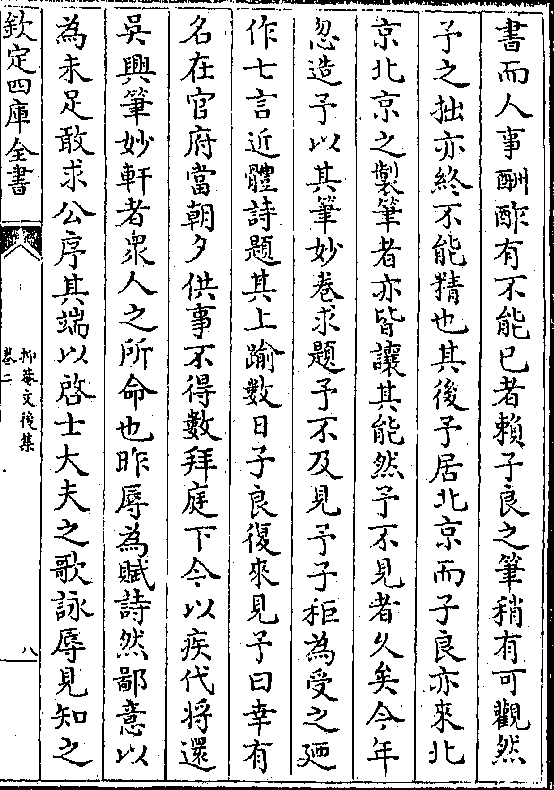 書而人事酬酢有不能已者賴子良之筆稍有可觀然
予之拙亦終不能精也其後予居北京而子良亦來北
京北京之製筆者亦皆讓其能然予不見者久矣今年
忽造予以其筆妙卷求題予不及見予子秬為受之廼
作七言近體詩題其上踰數日子良復來見予曰幸有
名在官府當朝夕供事不得數拜庭下今以疾代将還
吳興筆妙軒者衆人之所命也昨辱為賦詩然鄙意以
為未足敢求公序其端以啓士大夫之歌詠辱見知之
欽定四庫全書
抑菴文後集
卷二
八